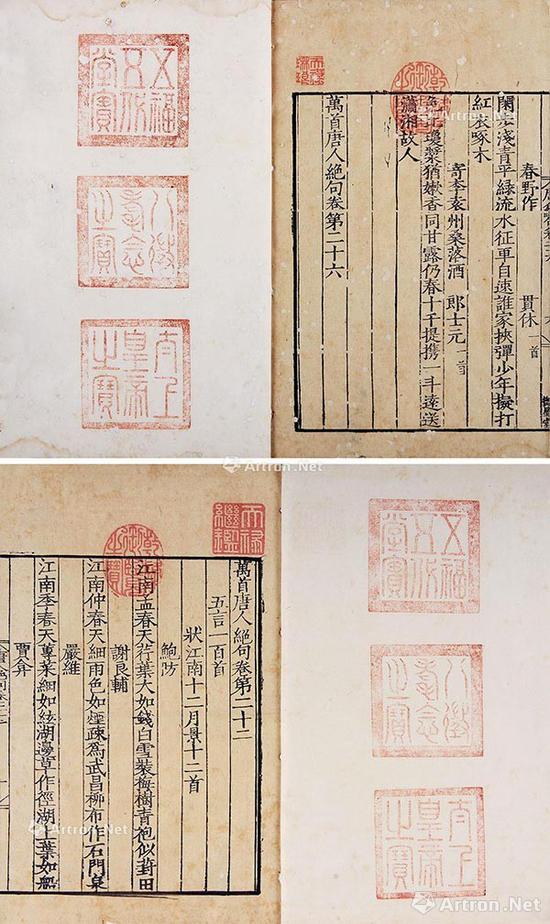 五福
五代
堂寶
八徵
耄念
之寶
太上
皇帝
之寶
天祿
琳琅
乾隆
御覽
之寶
春野作 貫休 一首
閑步淺青平綠流水征車自速誰家挾彈少年擬打
紅衣啄木
寄李袁州桑落酒 郎士元 一首
色比瓊漿猶嫩香同甘露仍春十千提攜一斗遠送
瀟湘故人
萬首唐人絕句卷第二十六
Artron.Net
天祿
繼鑑
乾隆
御覽
之寶
萬首唐人絕句卷第二十二
五言一百首
狀江南十二月景十二首
鮑防
江南孟春天荇葉大如錢白雪裝梅樹青袍似葑田
謝良輔
江南仲春天細雨色如煙疎爲武昌柳布作石門泉
嚴維
江南季春天蓴葉細如絃湖邊草作徑湖上葉如船
賈弇
五福
五代
堂寶
八徵
耄念
之寶
太上
皇帝
之寶
Artron.Net